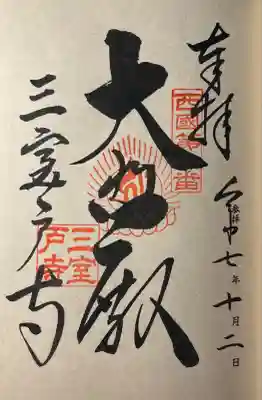 奉拝
令和七年十月二日
西國第十番
大悲殿
三室
戸寺
三室戸寺